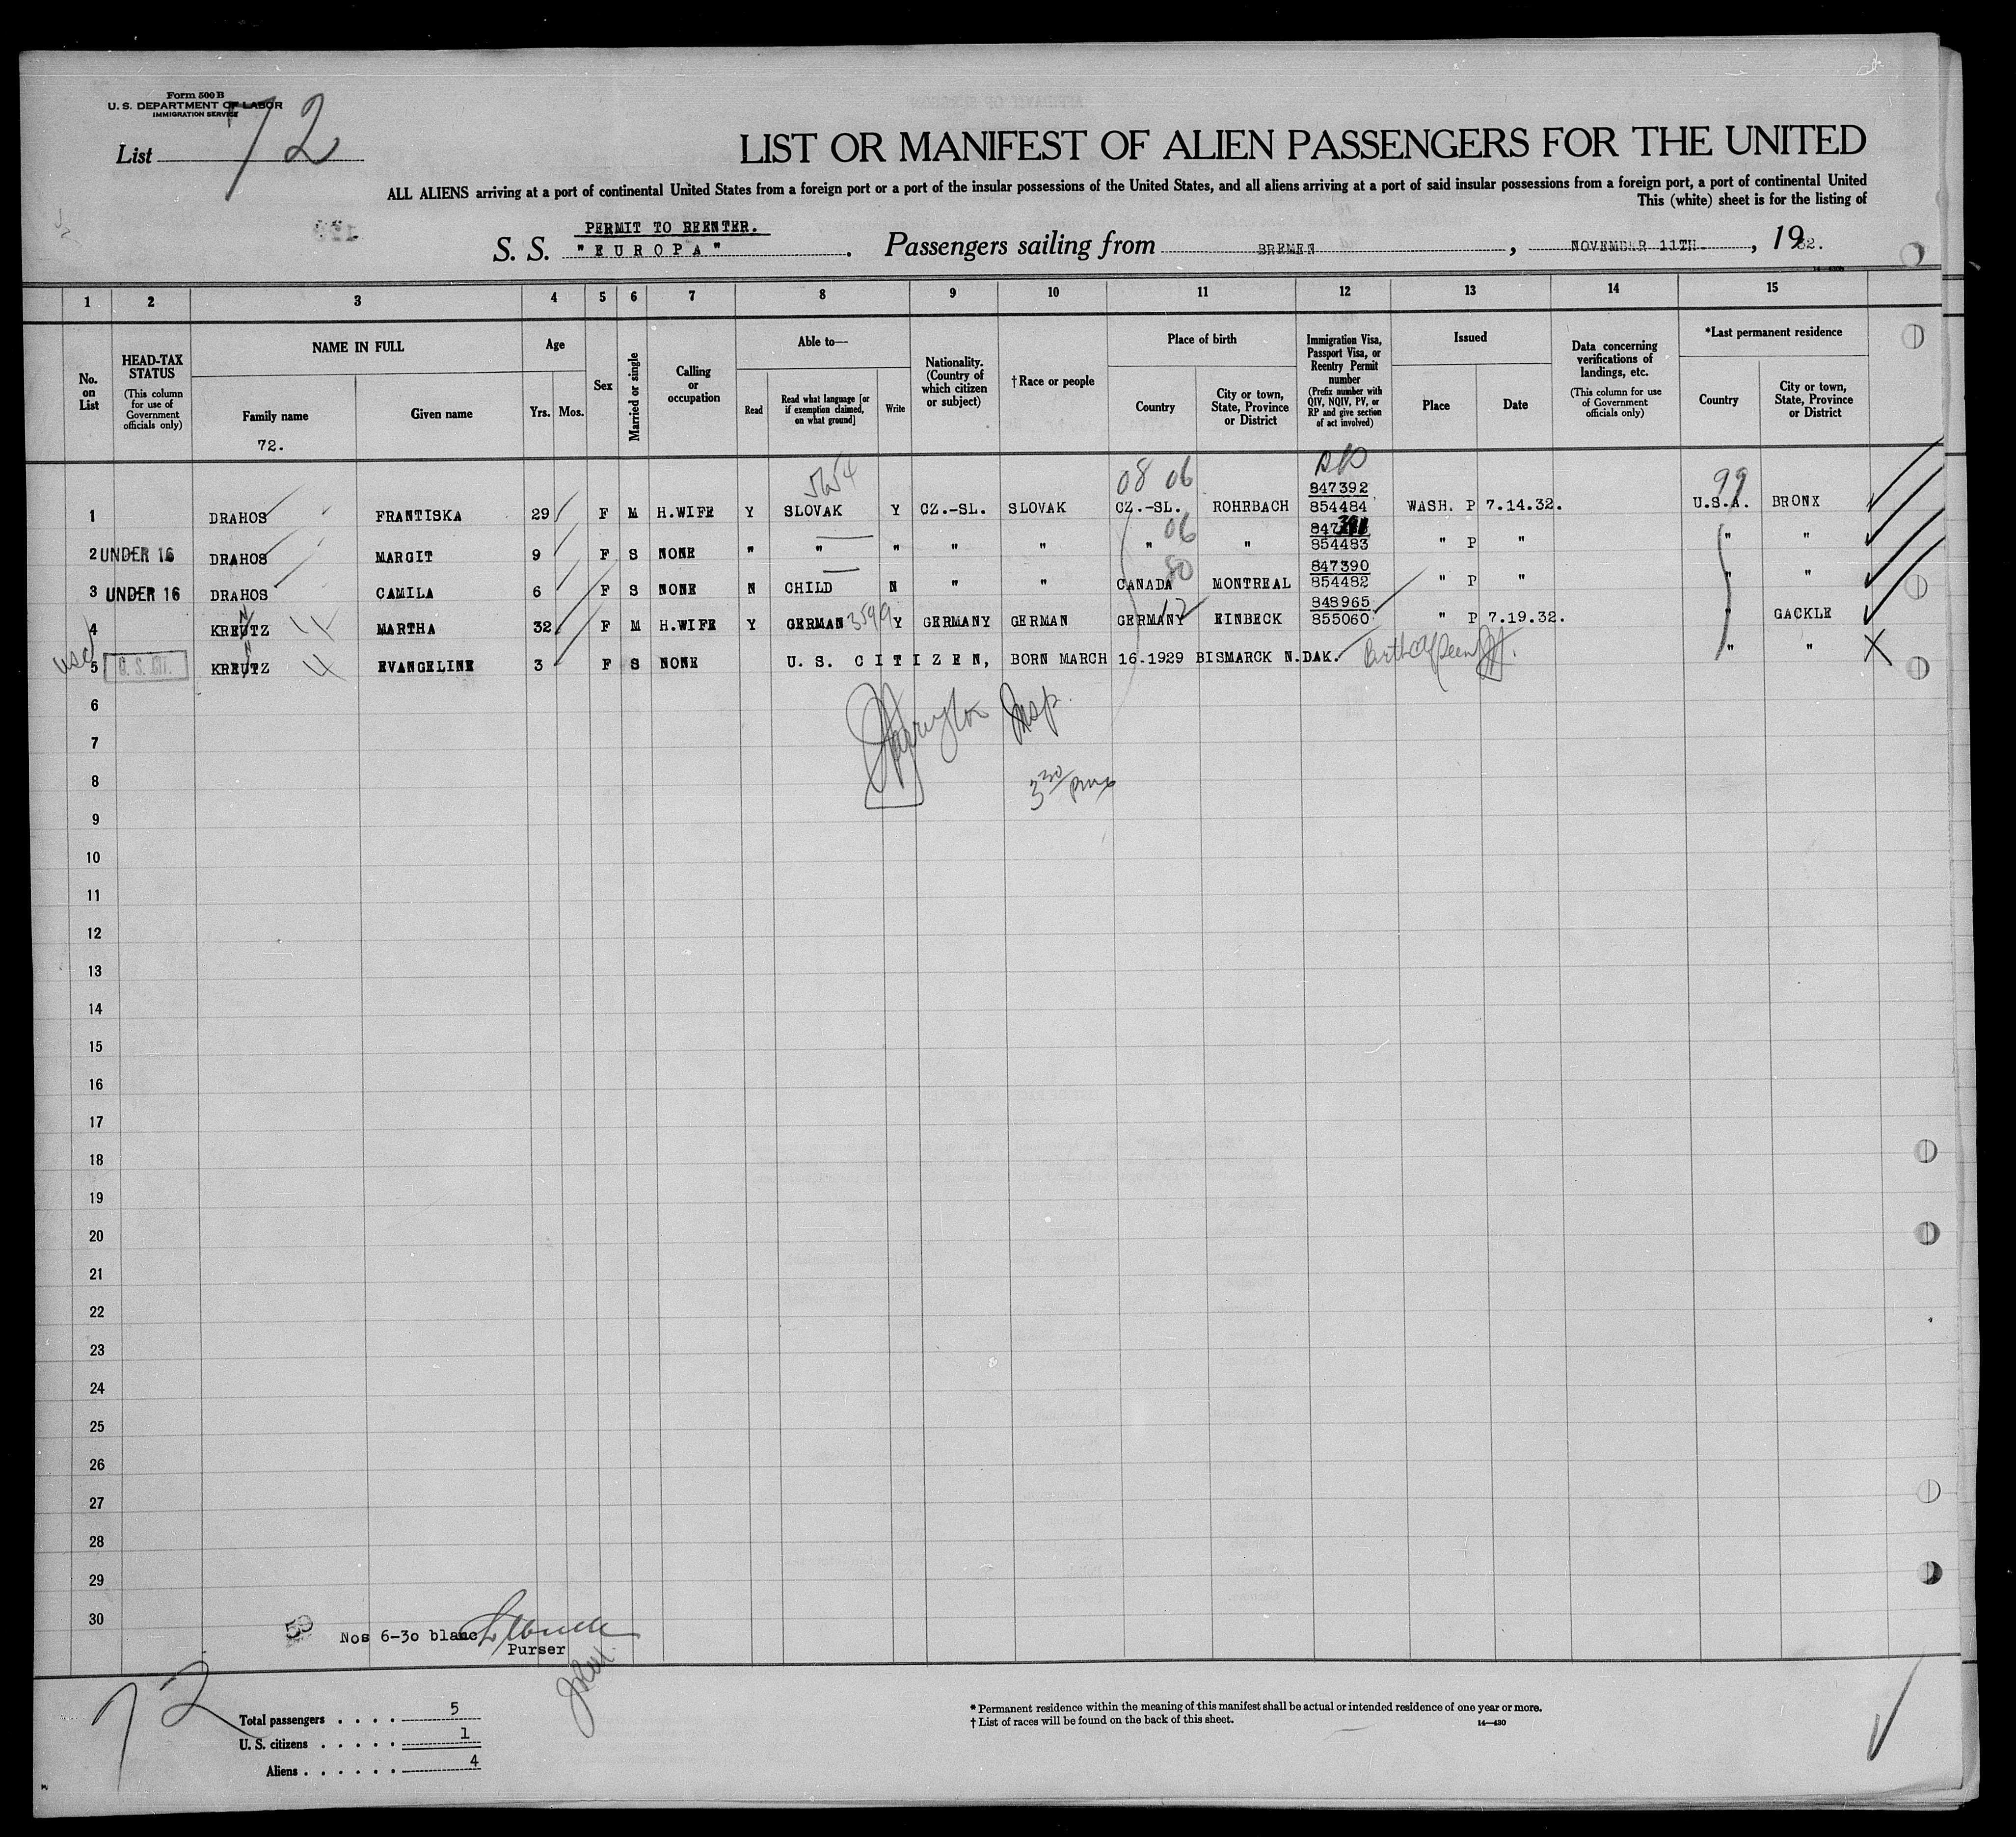 Form 500 B
U. S. DEPARTMENT OF LABOR
IMMIGRATION SERVICE
List 72
LIST OR MANIFEST OF ALIEN PASSENGERS FOR THE UNITED
ALL ALIENS arriving at a port of continental United States from a foreign port or a port of the insular possessions of the United States, and all aliens arriving at a port of said insular possessions from a foreign port, a port of continental United
This (white) sheet is for the listing of
PERMIT TO REENTER.
S. S. "EUROPA". Passengers sailing from BREMEN, NOVEMBER 11TH., 1932.
1 2 3 4 5 6 7 8 9 10 11 12 13 14 15
No. on List
HEAD-TAX STATUS (This column for use of Government officials only)
NAME IN FULL
Family name
Given name
72.
Age
Yrs. Mos.
Sex
Married or single
Calling or occupation
Able to—
Read
Read what language [or if exemption claimed, on what ground]
Write
Nationality. (Country of which citizen or subject)
† Race or people
Place of birth
Country
City or town, State, Province or District
Immigration Visa, Passport Visa, or Reentry Permit number (Prefix number with QIV, NQIV, PV, or RP and give section of act involved)
Issued
Place
Date
Data concerning verifications of landings, etc. (This column for use of Government officials only)
*Last permanent residence
Country
City or town, State, Province or District
08 06 99
847392
1 DRAHOS FRANTISKA 29 F M H.WIFE Y SLOVAK Y CZ.-SL. SLOVAK CZ.-SL. ROHRBACH 854484 WASH. P 7.14.32. U.S.A. BRONX
06
2 UNDER 16 DRAHOS MARGIT 9 F S NONE " " " " " " " 854483 " P " " "
847390
3 UNDER 16 DRAHOS CAMILA 6 F S NONE N CHILD N " " CANADA MONTREAL 854482 " P " " "
848965
4 KREUTZ MARTHA 32 F M H.WIFE Y GERMAN Y GERMANY GERMAN GERMANY EINBECK 855060 " P 7.19.32. " GACKLE
usc 5 U. S. CIT. KREUTZ EVANGELINE 3 F S NONE U. S. CITIZEN, BORN MARCH 16-1929 BISMARCK N.DAK. " "
Insp.
3 30 pm
6
7
8
9
10
11
12
13
14
15
16
17
18
19
20
21
22
23
24
25
26
27
28
29
30
59
Nos 6-30 blanc
Purser
72
Total passengers . . . . 5
U. S. citizens . . . . . 1
Aliens . . . . . . 4
* Permanent residence within the meaning of this manifest shall be actual or intended residence of one year or more.
† List of races will be found on the back of this sheet.
14—430